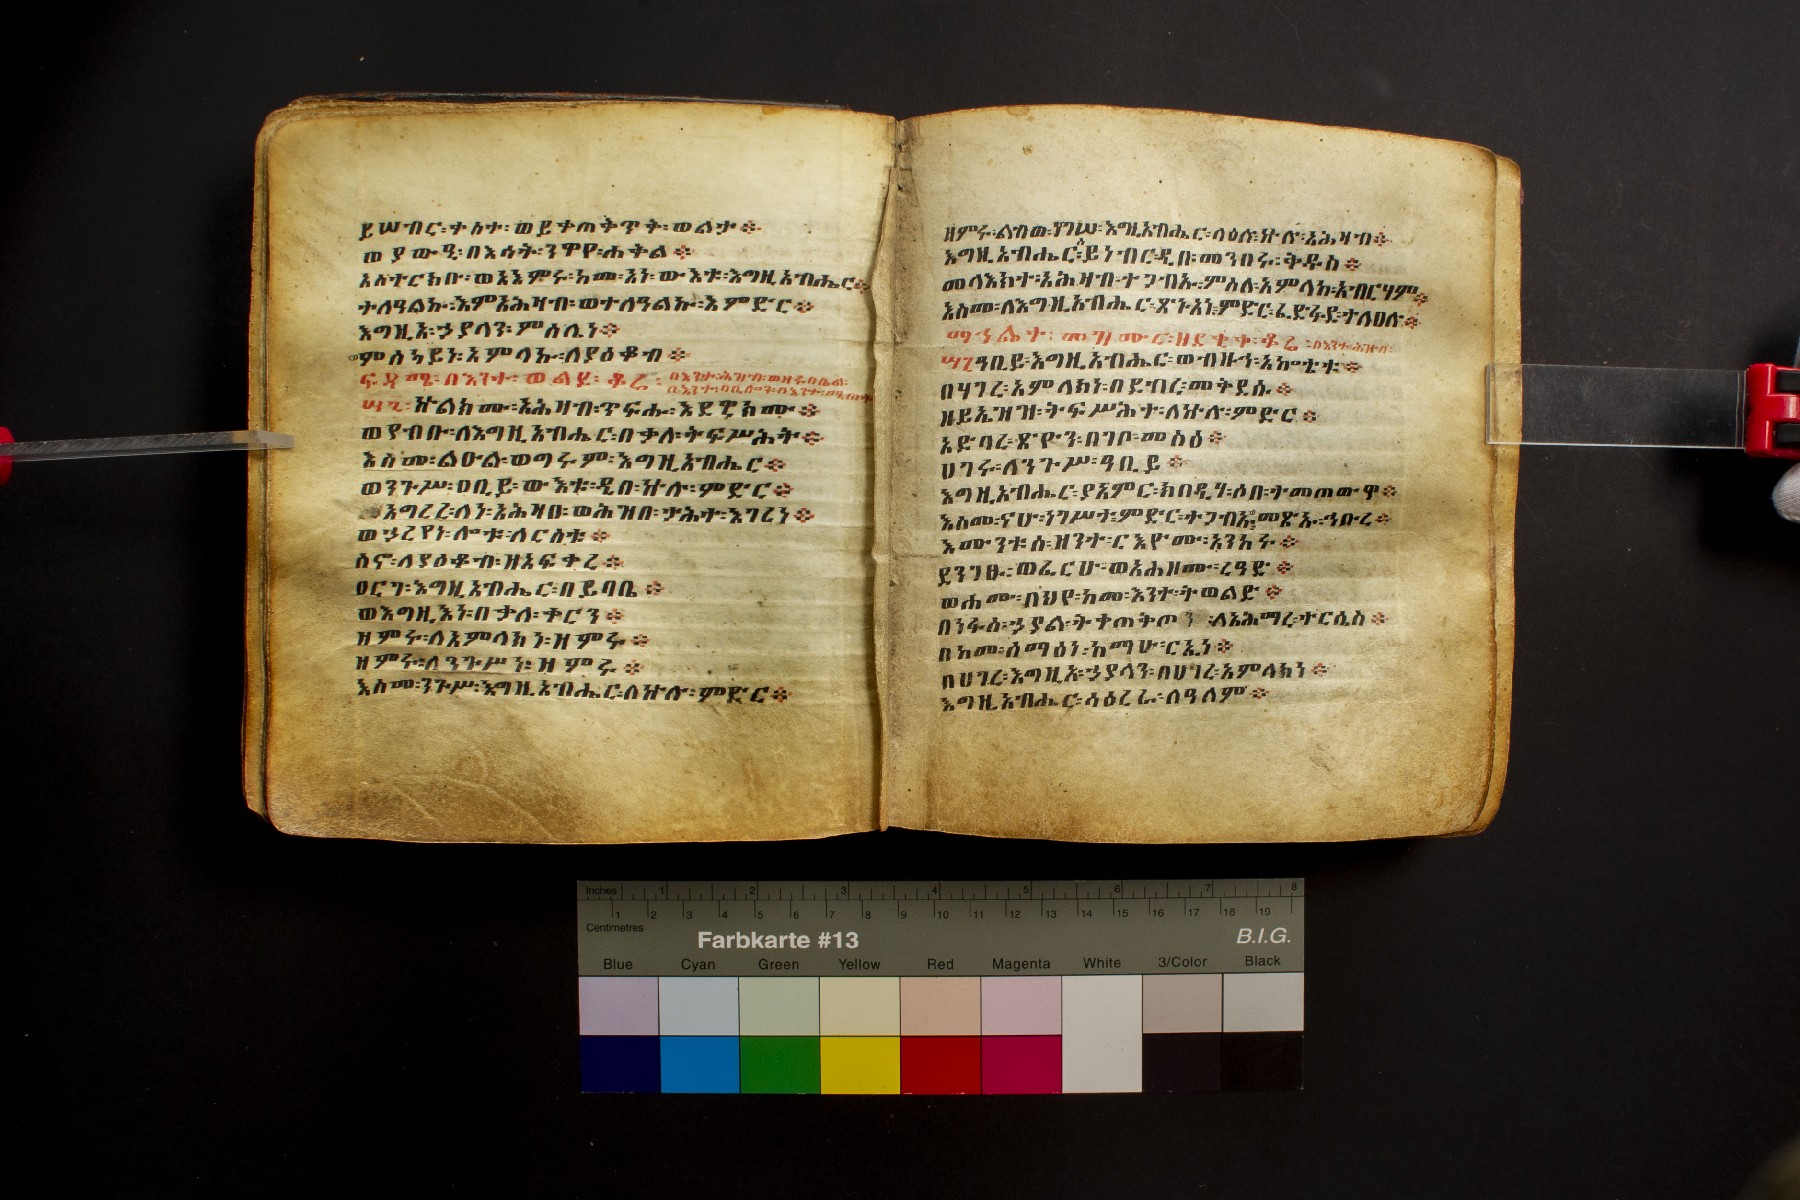 ይሠብር፡ቀስተ፡ወይቀጠቅጥ፡ቅ፡ወልታ፨
ወያውዒ፡በእሳት፡ንዋየ፡ሐቅል፨
አስተርክቡ፡ወአእምሩ፡ከመ፡አነ፡ውእቱ፡እግዚአብሔር፨
ተለዓልኩ፡እምአሕዛብ፡ወተለዓልኩ፡እምድር፨
እግዚአ፡ኃያላን፡ምስሌነ፨
ምስካይነ፡አምላኩ፡ለያዕቆብ፨
ፍጻሜ፡በእንተ፡ውሉደ፡ቆሬ፡
፵፮፡ኵልክሙ፡አሕዛብ፡ጥፍሑ፡እደዊክሙ፨
ወየብቡ፡ለእግዚአብሔር፡በቃለ፡ትፍሥሕት፨
እስመ፡ልዑል፡ወግሩም፡እግዚአብሔር፨
ወንጉሥ፡ዐቢይ፡ውእቱ፡ዲበ፡ኵሉ፡ምድር፨
አግረረ፡ለነ፡አሕዛበ፡ወሕዝበ፡ታሕተ፡እገሪነ፨
ወኃረየነ፡ሎቱ፡ለርስቱ፨
ስኖ፡ለያዕቆብ፡ዘአፍቀረ፨
ዐርገ፡እግዚአብሔር፡በይባቤ፨
ወእግዚእነ፡በቃለ፡ቀርን፨
ዘምሩ፡ለአምላክነ፡ዘምሩ፨
ዘምሩ፡ለንጉሥነ፡ዘምሩ፨
እስመ፡ንጉሥ፡እግዚአብሔር፡ለኵሉ፡ምድር፨
ዘምሩ፡ልብወ፡ነግሠ፡እግዚአብሔር፡ላዕለ፡ኵሉ፡አሕዛብ፨
እግዚአብሔር፡ይነብር፡ዲበ፡መንበሩ፡ቅዱስ፨
መላእክተ፡አሕዛብ፡ተጋብኡ፡ምስለ፡አምላከ፡አብርሃም፨
እስመ፡ለእግዚአብሔር፡ጽኑዓነ፡ምድር፡ፈድፋደ፡ተለዐሉ፨
ማኅሌት፡መዝሙር፡ዘደቂቀ፡ቆሬ፡
፵፯ዓቢይ፡እግዚአብሔር፡ወብዙኅ፡አኰቴቱ፨
በሃገረ፡አምላክነ፡በደብረ፡መቅደሱ፨
ዘይኤዝዝ፡ትፍሥሕተ፡ለኵሉ፡ምድር፨
አድባረ፡ጽዮን፡በገቦ፡መስዕ፨
ሀገሩ፡ለንጉሥ፡ዓቢይ፨
እግዚአብሔር፡ያአምር፡ክበዲሃ፡ሶበ፡ተመጠውዋ፨
እስመ፡ናሁ፡ነገሥተ፡ምድር፡ተጋብኡ፡መጽኡ፡ኅቡረ፨
እሙንቱሰ፡ዘንተ፡ርእዮሙ፡አንከሩ፨
ደንገፁ፡ወፈርሁ፡ወአሐዘሙ፡ረዓድ፨
ወሐሙ፡በህየ፡ከመ፡እንተ፡ትወልድ፨
በነፋስ፡ኃያል፡ትቀጠቅጦን፡ለአሕማረ፡ተርሴስ፨
በከመ፡ሰማዕነ፡ከማሁ፡ርኢነ፨
በሀገረ፡እግዚአ፡ኃያላን፡በሀገረ፡አምላክነ፨
እግዚአብሔር፡ሳዕረራ፡ለዓለም፨
Inches 1 2 3 4 5 6 7 8
1 2 3 4 5 6 7 8 9 10 11 12 13 14 15 16 17 18 19
Centimetres
Farbkarte #13 B.I.G.
Blue Cyan Green Yellow Red Magenta White 3/Color Black